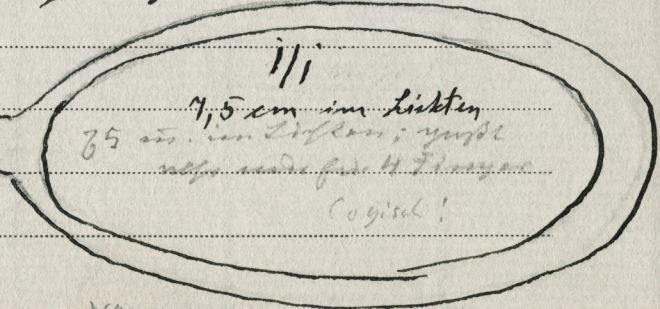 i/i
7,5 cm im Lichten
75 m. im Lichten; 
4 Finger
Logisch!